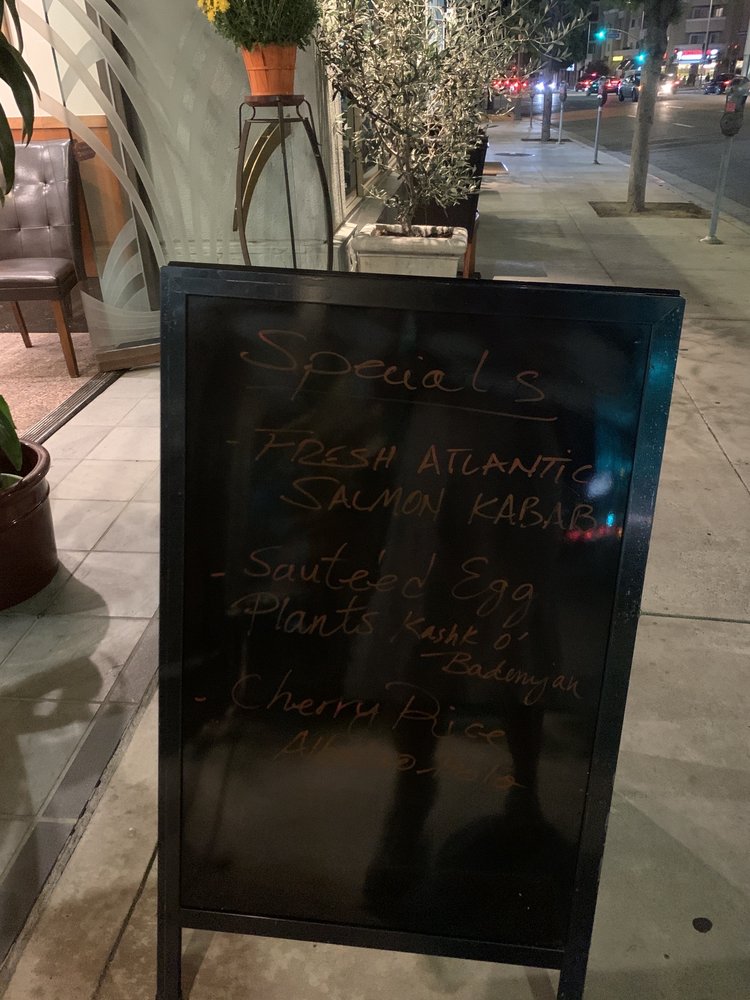 Specials
- FRESH ATLANTIC
SALMON KABAB
- Sautéed Egg
Plants Kashk O'
Bademjan
- Cherry Rice